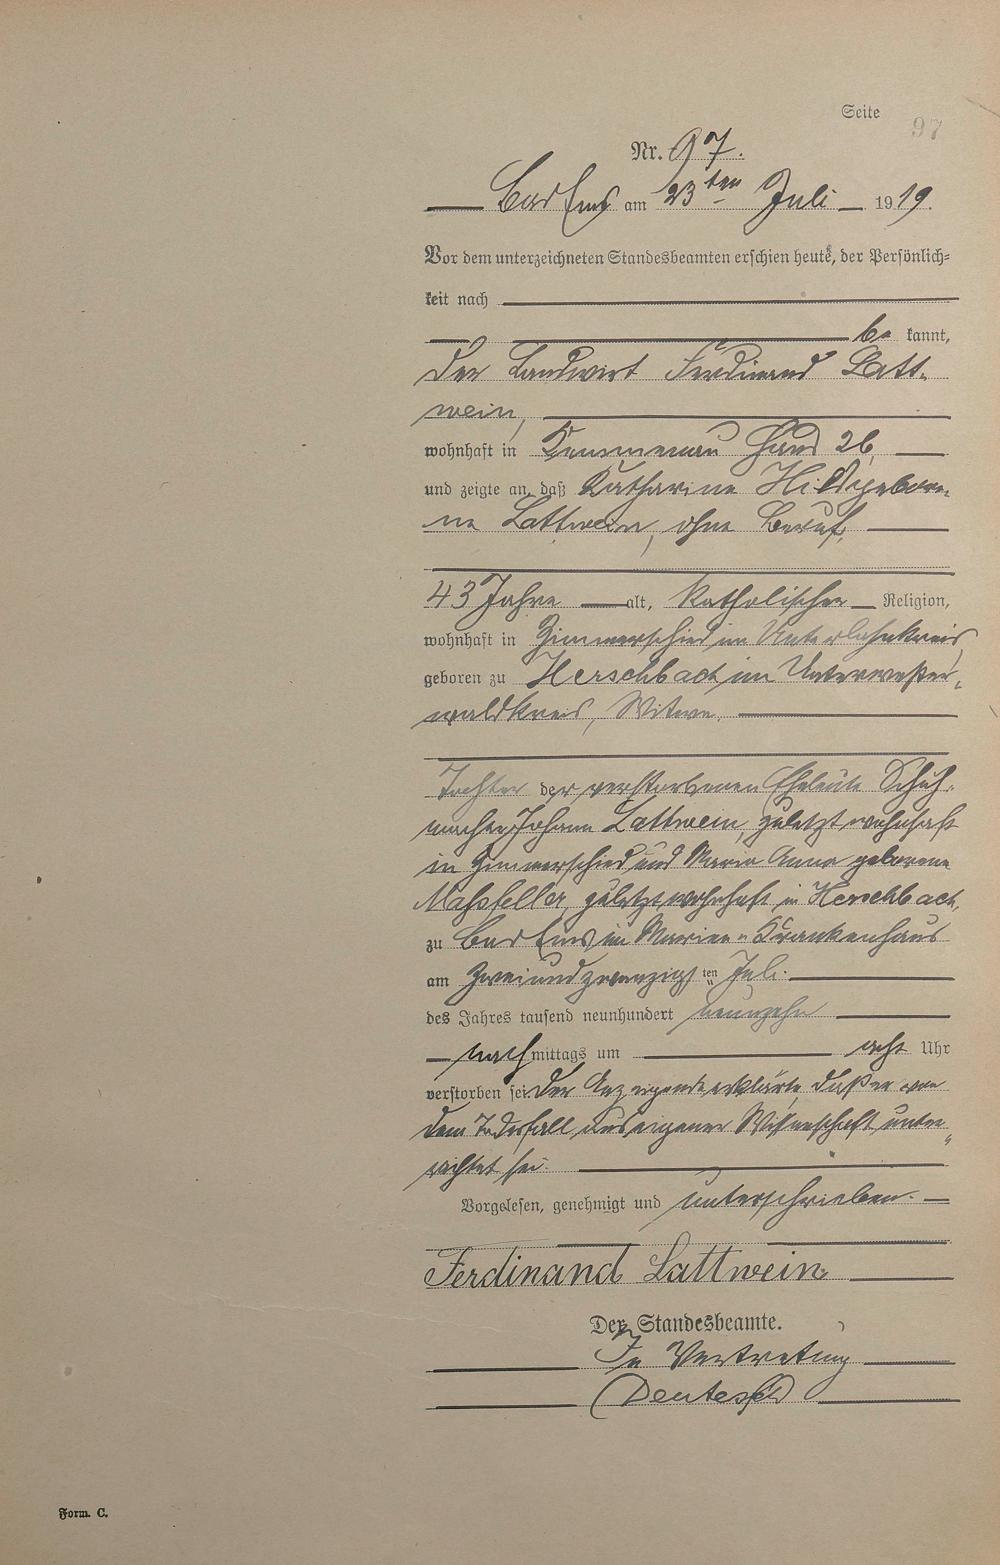 Seite
97
Nr. 97.
Bad Ems am 23ten Juli 1919.
Vor dem unterzeichneten Standesbeamten erschien heute, der Persönlich=
keit nach
be kannt,
der Landwirt Ferdinand Latt-
wein,
wohnhaft in Kemmenau Haus 26,
und zeigte an, daß Katharina Hild gebore-
ne Lattwein, ohne Beruf,
43 Jahre alt, katholischer Religion,
wohnhaft in Zimmerschied im Unterlahnkreis,
geboren zu Herschbach im Unterwester-
waldkreis, Witwe,
Tochter der verstorbenen Eheleute Schuh-
macher Johann Lattwein, zuletzt wohnhaft
in Zimmerschied und Maria Anna geborene
Mahsfeller, zuletzt wohnhaft in Herschbach,
zu Bad Ems im Marien-Krankenhaus
am zweiundzwanzigsten Juli
des Jahres tausend neunhundert neunzehn
nachmittags um acht Uhr
verstorben sei. Der Anzeigende erklärte, daß er von
dem Todesfall aus eigener Wissenschaft unter-
richtet sei.
Vorgelesen, genehmigt und unterschrieben.
Ferdinand Lattwein
Der Standesbeamte.
In Vertretung
Form. C.